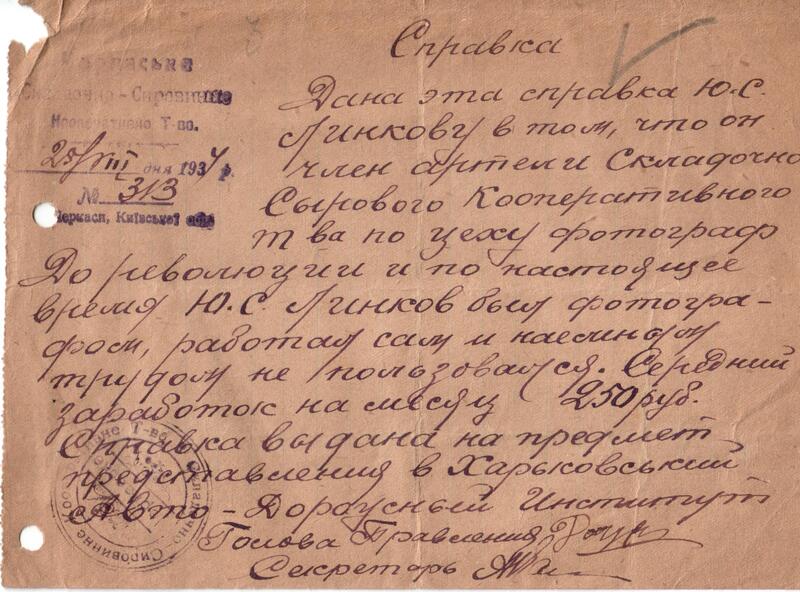 Справка
Черкаське
Складочно-Сировинне
Кооперативно Т-во.
25/VIII дня 1934 р.
№ 313
Черкаси, Київської обл
Дана эта справка Ю.С.
Линкову в том, что он
член артели Складочно
Сырового Кооперативного
т ва по цеху фотограф
До революции и по настоящее
время Ю.С. Линков был фотогра-
фом, работал сам и наемным
трудом не пользовался. Середний
заработок на месяц 250 руб.
Справка выдана на предмет
представления в Харьковский
Авто-Дорожный Институт
Голова Правления
Секретарь